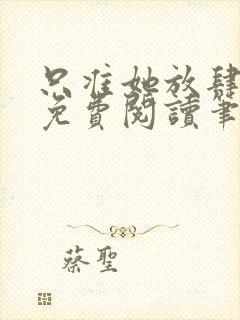 只准她放肆
免費閱讀筆
蔡聖